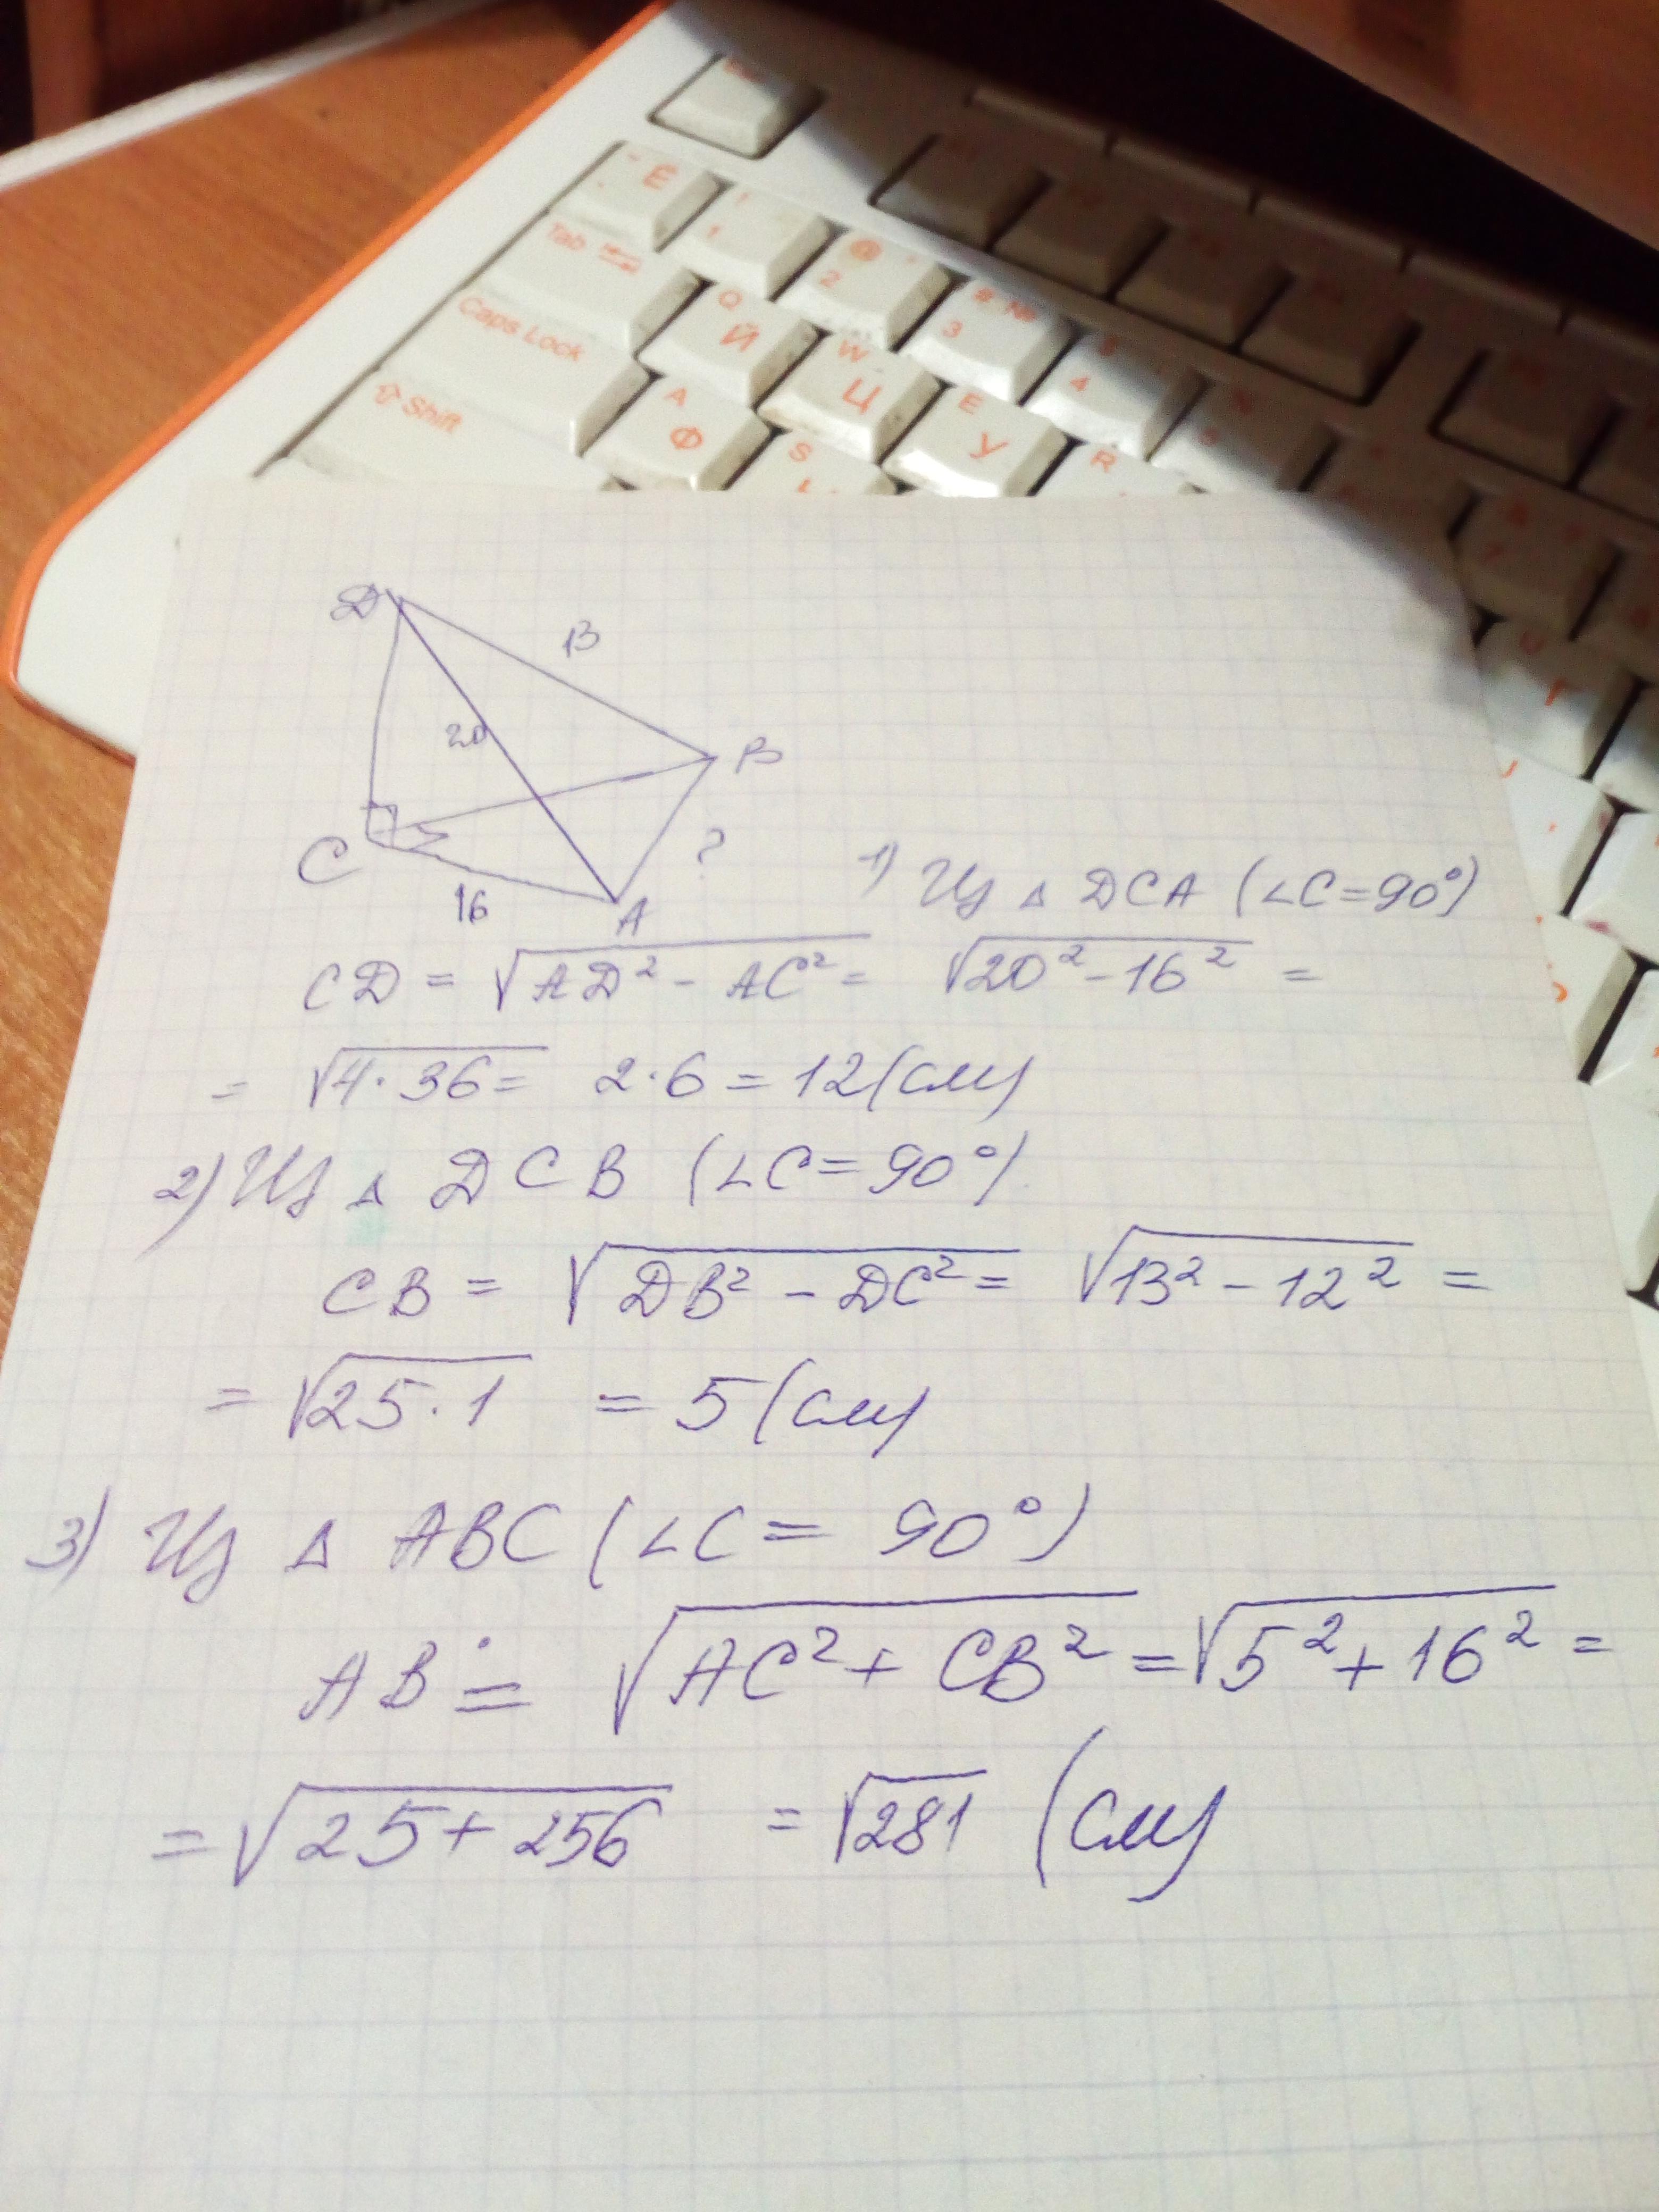 Ё
! 1
@ 2
# № 3
4
Tab
Q Й
W Ц
E У
R
Caps Lock
A Ф
S
Shift
D
13
20
B
C
?
16
A
1) Из Δ DCA (∠C=90°)
CD = √AD² - AC² = √20² - 16² =
= √4·36 = 2·6 = 12 (см)
2) Из Δ DCB (∠C=90°)
CB = √DB² - DC² = √13² - 12² =
= √25·1 = 5 (см)
3) Из Δ ABC (∠C= 90°)
AB = √AC² + CB² = √5² + 16² =
= √25 + 256 = √281 (см)